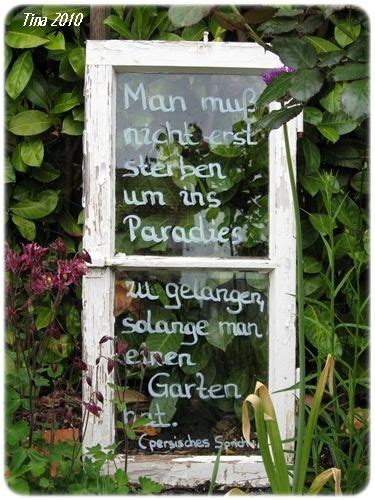 Tina 2010
Man muß
nicht erst
sterben
um ins
Paradies
zu gelangen,
solange man
einen
Garten
hat.
(persisches Sprich